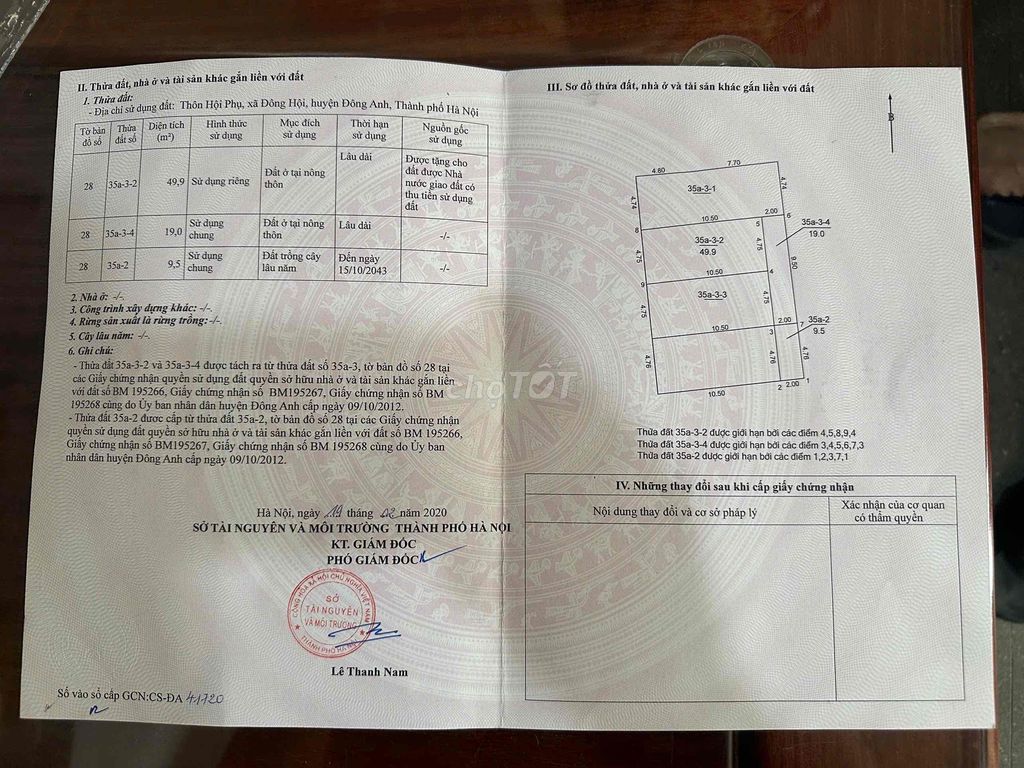 II. Thửa đất, nhà ở và tài sản khác gắn liền với đất
1. Thửa đất:
- Địa chỉ sử dụng đất: Thôn Hội Phụ, xã Đông Hội, huyện Đông Anh, Thành phố Hà Nội
Tờ bản đồ số | Thửa đất số | Diện tích (m²) | Hình thức sử dụng | Mục đích sử dụng | Thời hạn sử dụng | Nguồn gốc sử dụng
28 | 35a-3-2 | 49,9 | Sử dụng riêng | Đất ở tại nông thôn | Lâu dài | Được tặng cho đất được Nhà nước giao đất có thu tiền sử dụng đất
28 | 35a-3-4 | 19,0 | Sử dụng chung | Đất ở tại nông thôn | Lâu dài | -/-
28 | 35a-2 | 9,5 | Sử dụng chung | Đất trồng cây lâu năm | Đến ngày 15/10/2043 | -/-
2. Nhà ở: -/-.
3. Công trình xây dựng khác: -/-
4. Rừng sản xuất là rừng trồng: -/-.
5. Cây lâu năm: -/-.
6. Ghi chú:
- Thửa đất 35a-3-2 và 35a-3-4 được tách ra từ thửa đất số 35a-3, tờ bản đồ số 28 tại
các Giấy chứng nhận quyền sử dụng đất quyền sở hữu nhà ở và tài sản khác gắn liền
với đất số BM 195266, Giấy chứng nhận số BM195267, Giấy chứng nhận số BM
195268 cùng do Ủy ban nhân dân huyện Đông Anh cấp ngày 09/10/2012.
- Thửa đất 35a-2 được cấp từ thửa đất 35a-2, tờ bản đồ số 28 tại các Giấy chứng nhận
quyền sử dụng đất quyền sở hữu nhà ở và tài sản khác gắn liền với đất số BM 195266,
Giấy chứng nhận số BM195267, Giấy chứng nhận số BM 195268 cùng do Ủy ban
nhân dân huyện Đông Anh cấp ngày 09/10/2012.
Hà Nội, ngày 19 tháng 02 năm 2020
SỞ TÀI NGUYÊN VÀ MÔI TRƯỜNG THÀNH PHỐ HÀ NỘI
KT. GIÁM ĐỐC
PHÓ GIÁM ĐỐC
CỘNG HÒA XÃ HỘI CHỦ NGHĨA VIỆT NAM
SỞ
TÀI NGUYÊN
VÀ MÔI TRƯỜNG
THÀNH PHỐ HÀ NỘI
Lê Thanh Nam
Số vào sổ cấp GCN:CS-ĐA 41720
III. Sơ đồ thửa đất, nhà ở và tài sản khác gắn liền với đất
B
4.80
7.70
35a-3-1
4.74
4.74
10.50
2.00
8
5
6
35a-3-4
19.0
35a-3-2
49.9
4.75
4.75
9.50
10.50
9
4
35a-3-3
4.75
4.75
10.50
2.00
3
7
35a-2
9.5
4.76
4.76
4.76
10.50
2
2.00
1
Thửa đất 35a-3-2 được giới hạn bởi các điểm 4,5,8,9,4
Thửa đất 35a-3-4 được giới hạn bởi các điểm 3,4,5,6,7,3
Thửa đất 35a-2 được giới hạn bởi các điểm 1,2,3,7,1
IV. Những thay đổi sau khi cấp giấy chứng nhận
Nội dung thay đổi và cơ sở pháp lý | Xác nhận của cơ quan có thẩm quyền
chợTỐT